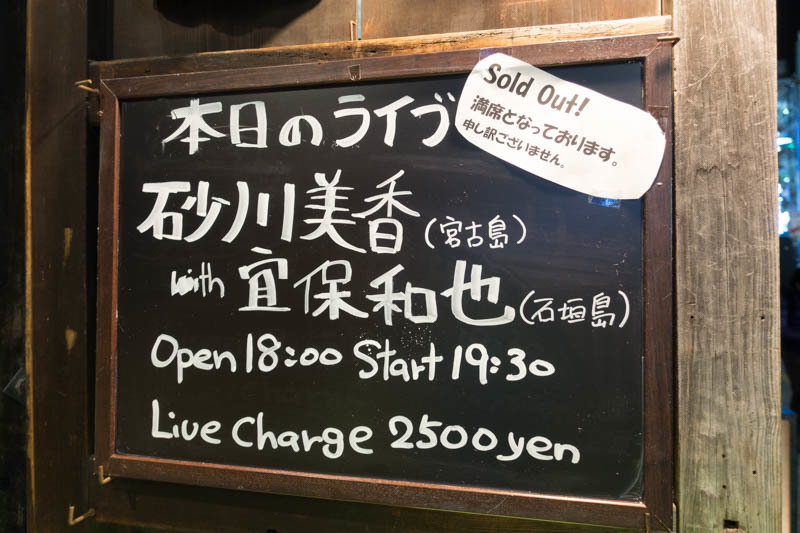 本日のライブ
Sold Out!
満席となっております。
申し訳ございません。
砂川美香(宮古島)
with 宜保和也(石垣島)
Open 18:00 Start 19:30
Live Charge 2500yen